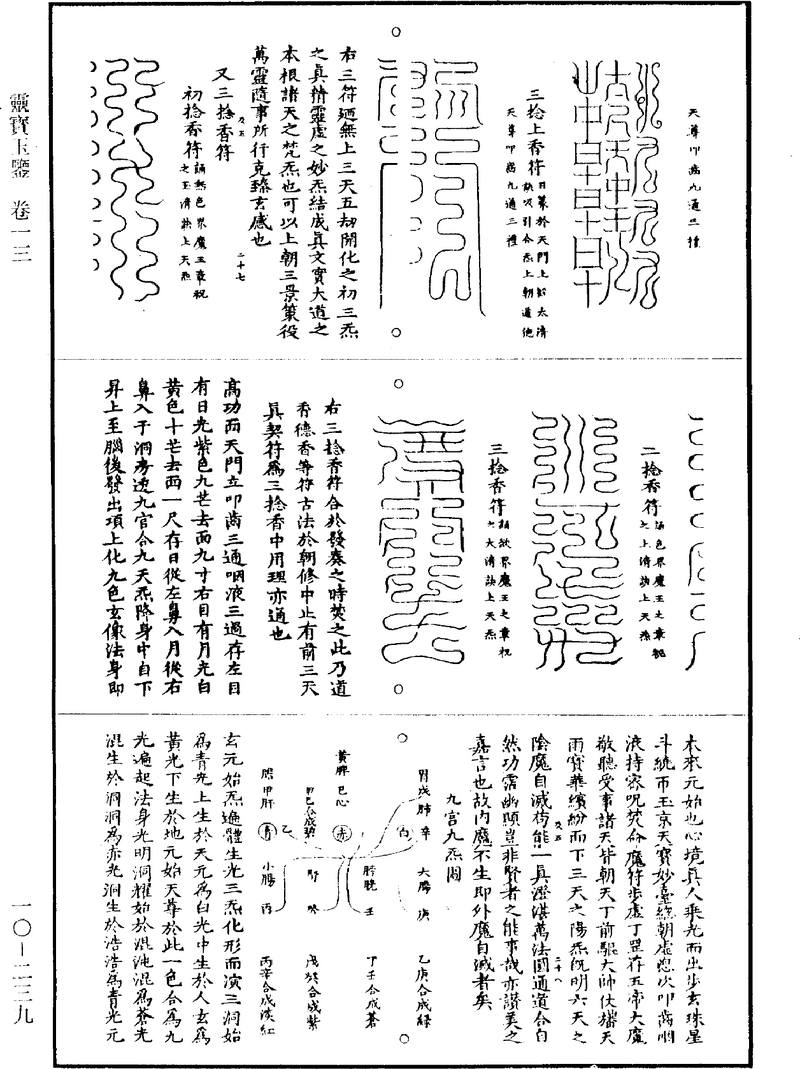 靈寶玉鑒 卷一三
一〇-二三九
天尊叩齒九通三禮
三捻上香符
目策於天門上對太清
訣吸引合炁上朝道德
天尊叩齒九通三禮
右三符廼無上三天五劫開化之初三炁
之真精靈虛之妙炁結成真文實大道之
本根諸天之梵炁也可以上朝三景策役
萬靈隨事所行克臻玄感也
二十七
又三捻香符
初捻香符
誦無色界魔王章祝
之玉清訣上天炁
二捻香符
誦色界魔王之章祝
之上清訣上天炁
三捻香符
誦欲界魔王之章祝
之太清訣上天炁
右三捻香符合於發奏之時焚之此乃道
香德香等符古法於朝修中止有前三天
真契符為三捻香中用理亦通也
高功面天門立叩齒三通咽液三過存左目
有日光紫色九芒去面九寸右目有月光白
黃色十芒去面一尺存日從左鼻入月從右
鼻入于洞房透九宮合九天炁降身中自下
昇上至腦後發出項上化九色玄像法身即
本來元始也心境真人乘光而出步玄珠星
斗統币玉京天寶妙臺總朝虛想次叩齒咽
液持密呪焚命魔符步虛丁罡存五帝大魔
敬聽受事諸天皆朝天丁前驅大帥仗旛天
雨寶華繽紛而下三天之陽炁既明六天之
陰魔自滅苟能一真澄湛萬法圓通道合自
二十八
然功霑幽顯豈非賢者之能事哉亦讚美之
嘉言也故內魔不生即外魔自滅者矣
九宮九炁圖
胃戊肺辛
白
大腸 庚
乙庚合成綠
膀胱 壬
丁壬合成蒼
黃脾 己心
赤
甲己合成碧
腎 癸
戊癸合成紫
膽甲肝
青
乙
小腸 丙
丙辛合成淡紅
玄元始炁遍體生光三炁化形而演三洞始
為青光上生於天元為白光中生於人玄為
黃光下生於地元始天尊於此一色合為九
光遍起法身光明洞耀始於混沌混為蒼光
混生於洞洞為赤光洞生於浩浩為青光元